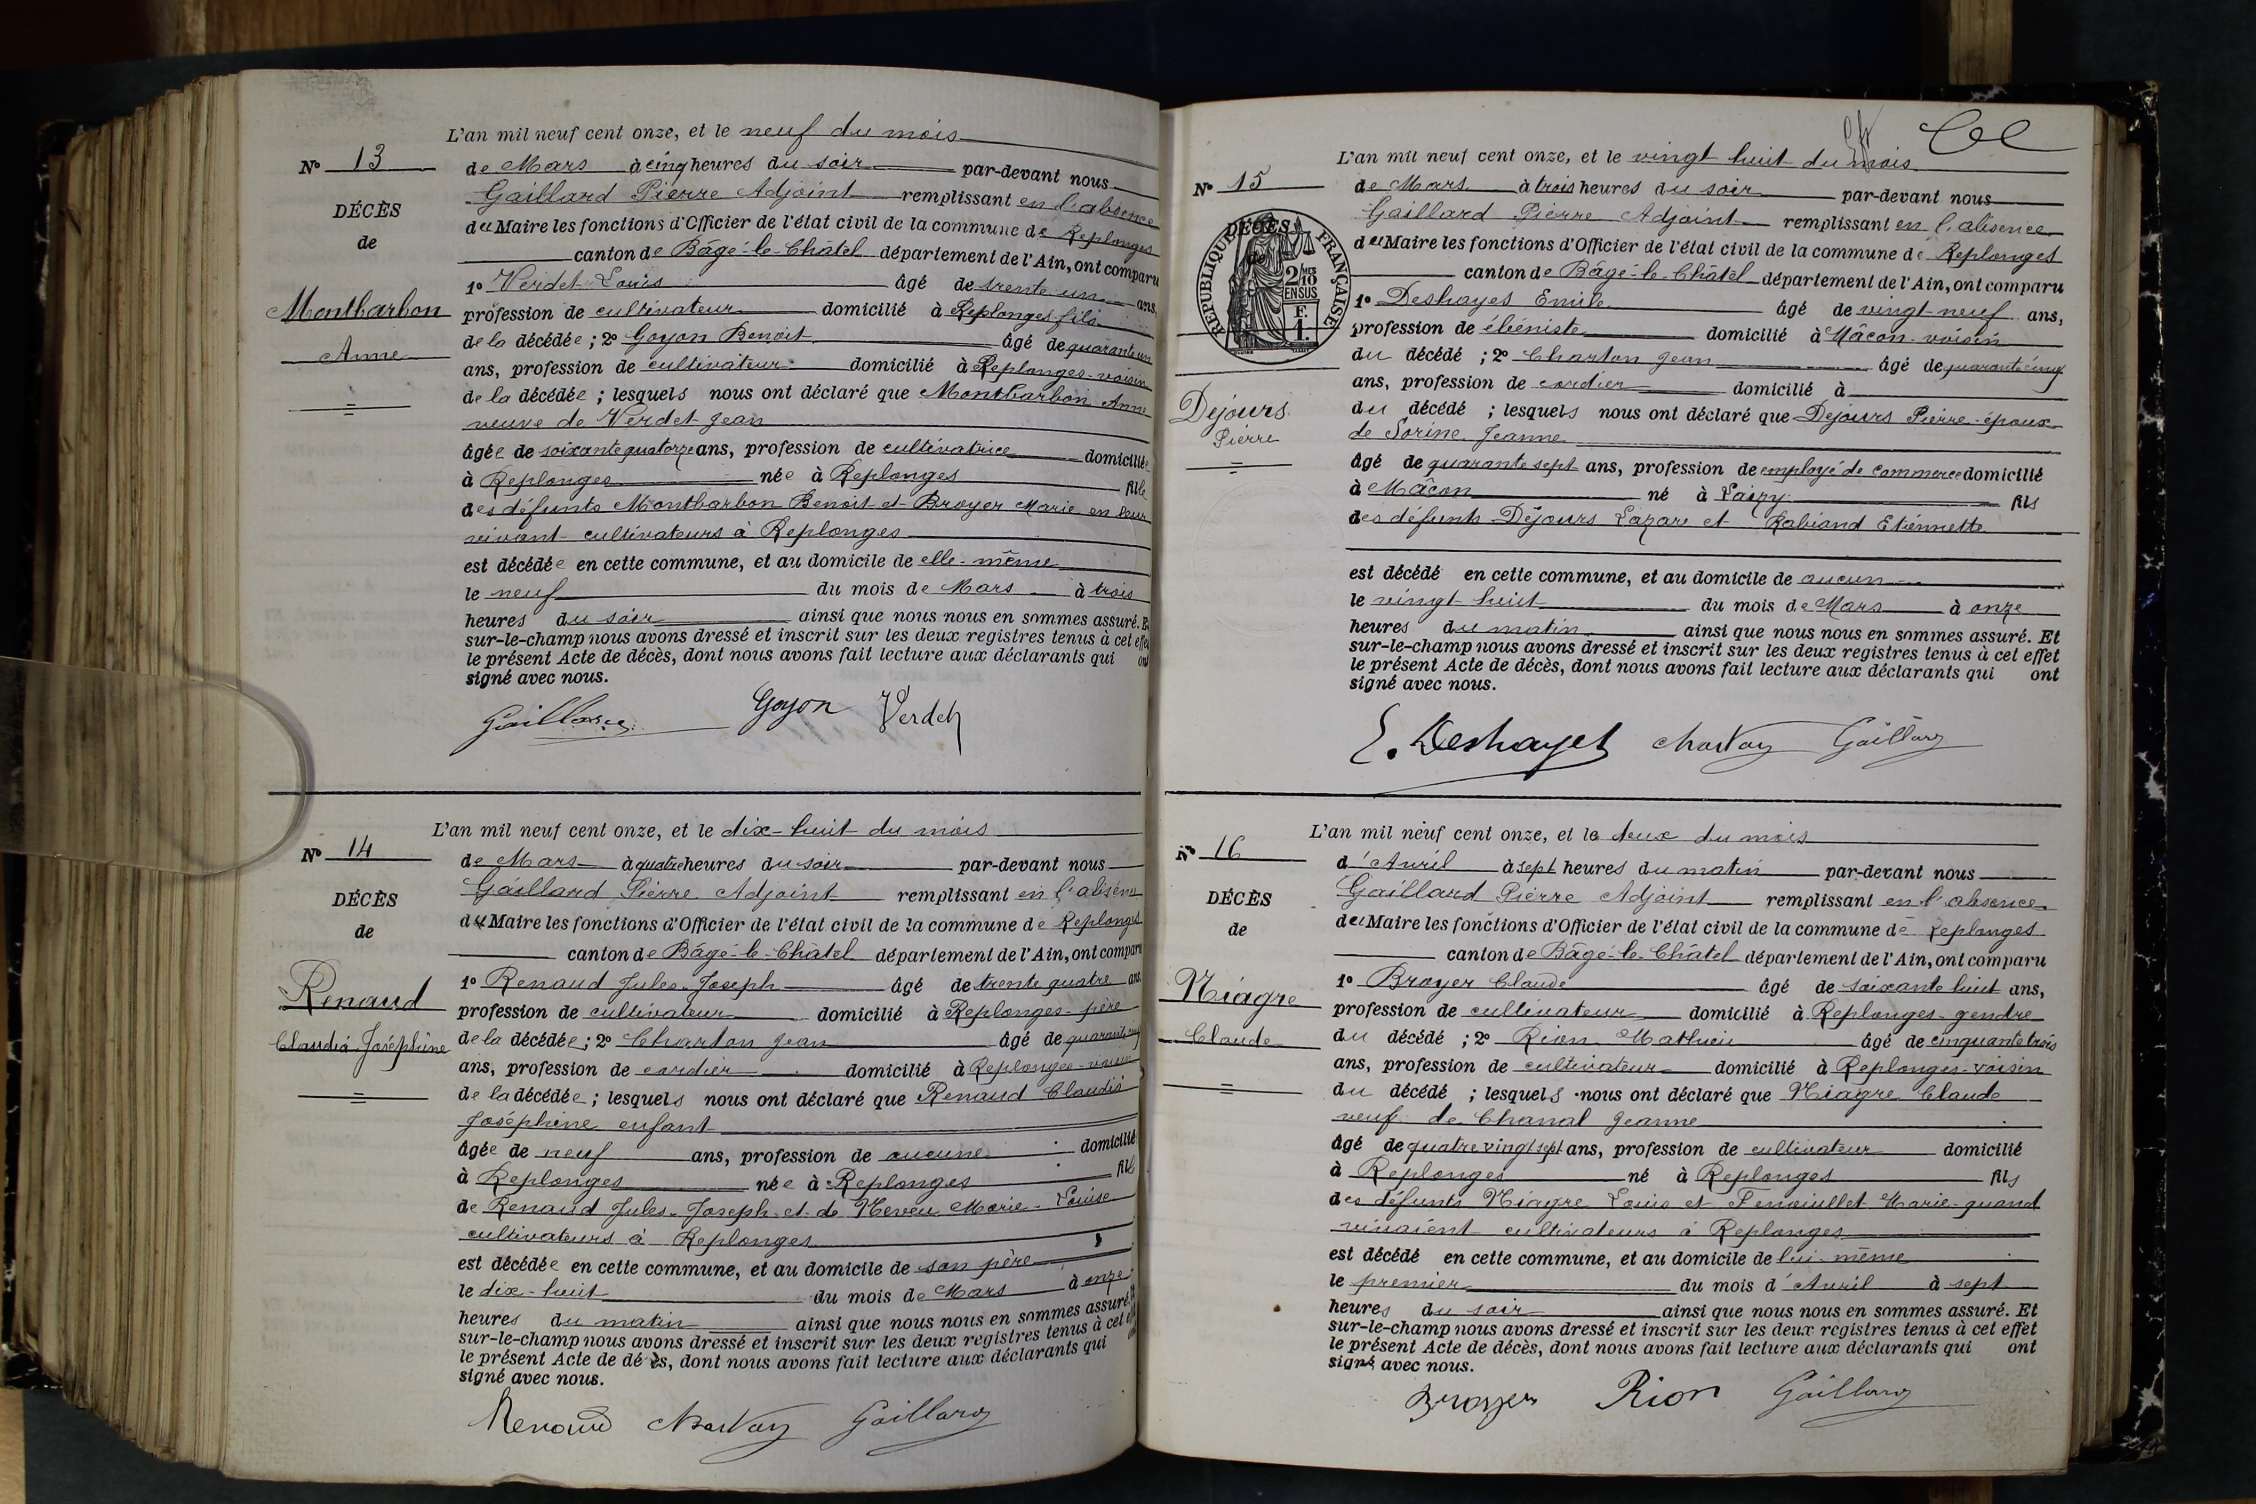 L'an mil neuf cent onze, et le neuf du mois
No 13
de Mars à cinq heures du soir par-devant nous
Gaillard Pierre Adjoint remplissant en l'absence
DÉCÈS
du Maire les fonctions d'Officier de l'état civil de la commune de Replonges
de
canton de Bâgé-le-Châtel département de l'Ain, ont comparu
1o Verdet Louis âgé de trente un ans,
Montbarbon
profession de cultivateur domicilié à Replonges fils
de la décédée ; 2o Goyon Benoit âgé de quarante un
Anne
ans, profession de cultivateur domicilié à Replonges-voisin
de la décédée ; lesquels nous ont déclaré que Montbarbon Anne
veuve de Verdet Jean
âgée de soixante quatorze ans, profession de cultivatrice domiciliée
à Replonges née à Replonges fille
des défunts Montbarbon Benoit et Broyer Marie en leur
vivant cultivateurs à Replonges
est décédée en cette commune, et au domicile de elle-même
le neuf du mois de Mars à trois
heures du soir ainsi que nous nous en sommes assuré. Et
sur-le-champ nous avons dressé et inscrit sur les deux registres tenus à cet effet
le présent Acte de décès, dont nous avons fait lecture aux déclarants qui ont
signé avec nous.
Gaillard Goyon Verdet
L'an mil neuf cent onze, et le dix-huit du mois
No 14
de Mars à quatre heures du soir par-devant nous
Gaillard Pierre Adjoint remplissant en l'absence
DÉCÈS
du Maire les fonctions d'Officier de l'état civil de la commune de Replonges
de
canton de Bâgé-le-Châtel département de l'Ain, ont comparu
1o Renaud Jules-Joseph âgé de trente quatre ans,
Renaud
profession de cultivateur domicilié à Replonges-père
de la décédée ; 2o Charton Jean âgé de quarante cinq
Claudia Joséphine
ans, profession de cordier domicilié à Replonges-voisin
de la décédée ; lesquels nous ont déclaré que Renaud Claudia
Joséphine enfant
âgée de neuf ans, profession de aucune domicilié
à Replonges née à Replonges fil
de Renaud Jules-Joseph et de Neveu Marie-Louise
cultivateurs à Replonges
est décédée en cette commune, et au domicile de son père
le dix-huit du mois de Mars à onze
heures du matin ainsi que nous nous en sommes assuré. Et
sur-le-champ nous avons dressé et inscrit sur les deux registres tenus à cet
le présent Acte de dé ès, dont nous avons fait lecture aux déclarants qui
signé avec nous.
Renaud Charton Gaillard
L'an mil neuf cent onze, et le vingt huit du mois
No 15
de Mars à trois heures du soir par-devant nous
Gaillard Pierre Adjoint remplissant en l'absence
DÉCÈS
RÉPUBLIQUE FRANÇAISE
2/10 EN SUS
F. 1.
du Maire les fonctions d'Officier de l'état civil de la commune de Replonges
canton de Bâgé-le-Châtel département de l'Ain, ont comparu
1o Deshayes Emile âgé de vingt-neuf ans,
profession de ébéniste domicilié à Mâcon-voisin
du décédé ; 2o Charton Jean âgé de quarante cinq
ans, profession de cordier domicilié à
Dejours
du décédé ; lesquels nous ont déclaré que Dejours Pierre époux
Pierre
de Sorine Jeanne
âgé de quarante sept ans, profession de employé de commerce domicilié
à Mâcon né à Laizy fils
des défunts Dejours Lazare et Rabiand Etiennette
est décédé en cette commune, et au domicile de aucun
le vingt huit du mois de Mars à onze
heures du matin ainsi que nous nous en sommes assuré. Et
sur-le-champ nous avons dressé et inscrit sur les deux registres tenus à cet effet
le présent Acte de décès, dont nous avons fait lecture aux déclarants qui ont
signé avec nous.
E. Deshayes Charton Gaillard
L'an mil neuf cent onze, et le deux du mois
No 16
d'Avril à sept heures du matin par-devant nous
Gaillard Pierre Adjoint remplissant en l'absence
DÉCÈS
du Maire les fonctions d'Officier de l'état civil de la commune de Replonges
de
canton de Bâgé-le-Châtel département de l'Ain, ont comparu
1o Broyer Claude âgé de soixante huit ans,
Niagre
profession de cultivateur domicilié à Replonges-gendre
Claude
du décédé ; 2o Rion Mathieu âgé de cinquante trois
ans, profession de cultivateur domicilié à Replonges-voisin
du décédé ; lesquels nous ont déclaré que Niagre Claude
veuf de Chanal Jeanne
âgé de quatre vingt sept ans, profession de cultivateur domicilié
à Replonges né à Replonges fils
des défunts Niagre Louis et Fenouillet Marie-quand
vivaient cultivateurs à Replonges
est décédé en cette commune, et au domicile de lui-même
le premier du mois d'Avril à sept
heures du soir ainsi que nous nous en sommes assuré. Et
sur-le-champ nous avons dressé et inscrit sur les deux registres tenus à cet effet
le présent Acte de décès, dont nous avons fait lecture aux déclarants qui ont
signé avec nous.
Broyer Rion Gaillard